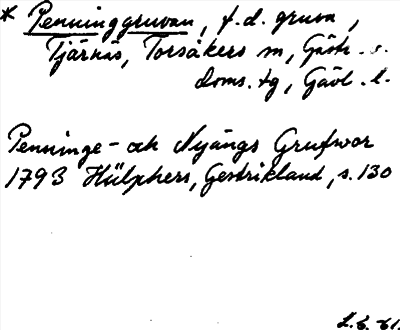 * Penninggruvan, f.d. gruva,
Tjärnäs, Torsåkers sn, Gästr.
doms. tg, Gävl. l.
Penninge- och Nyängs Grufwor
1793 Hülphers, Gestrikland, s. 130